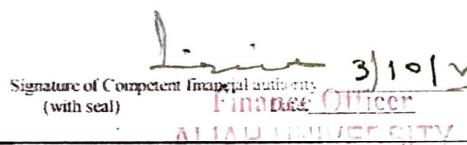 3/10/
Signature of Competent financial authority
(with seal) Date
Finance Officer
ALIAH UNIVERSITY